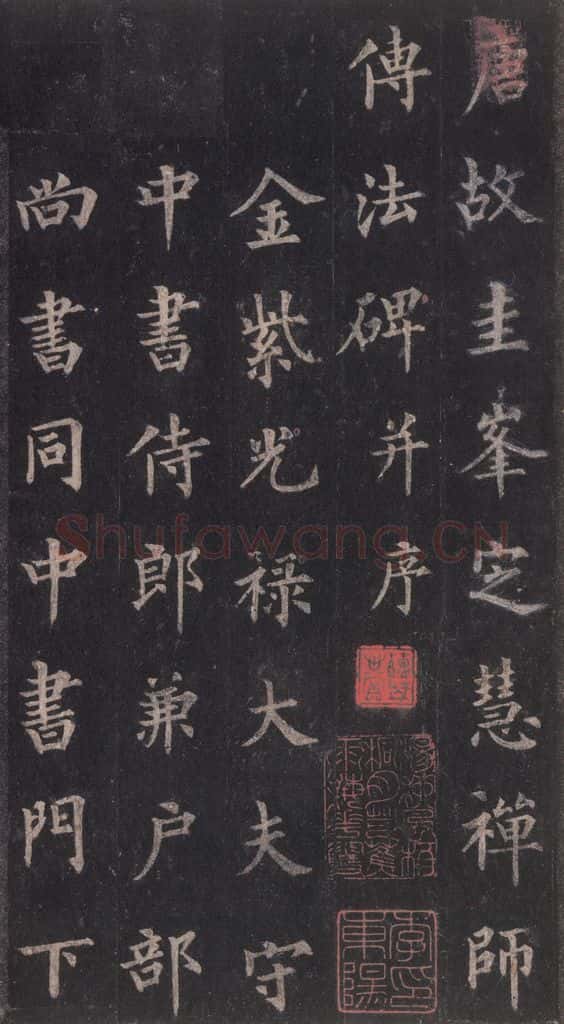 唐故圭峯定慧禪師
傳法碑并序
金紫光祿大夫守
中書侍郎兼户部
尚書同中書門下
Shufawang.CN